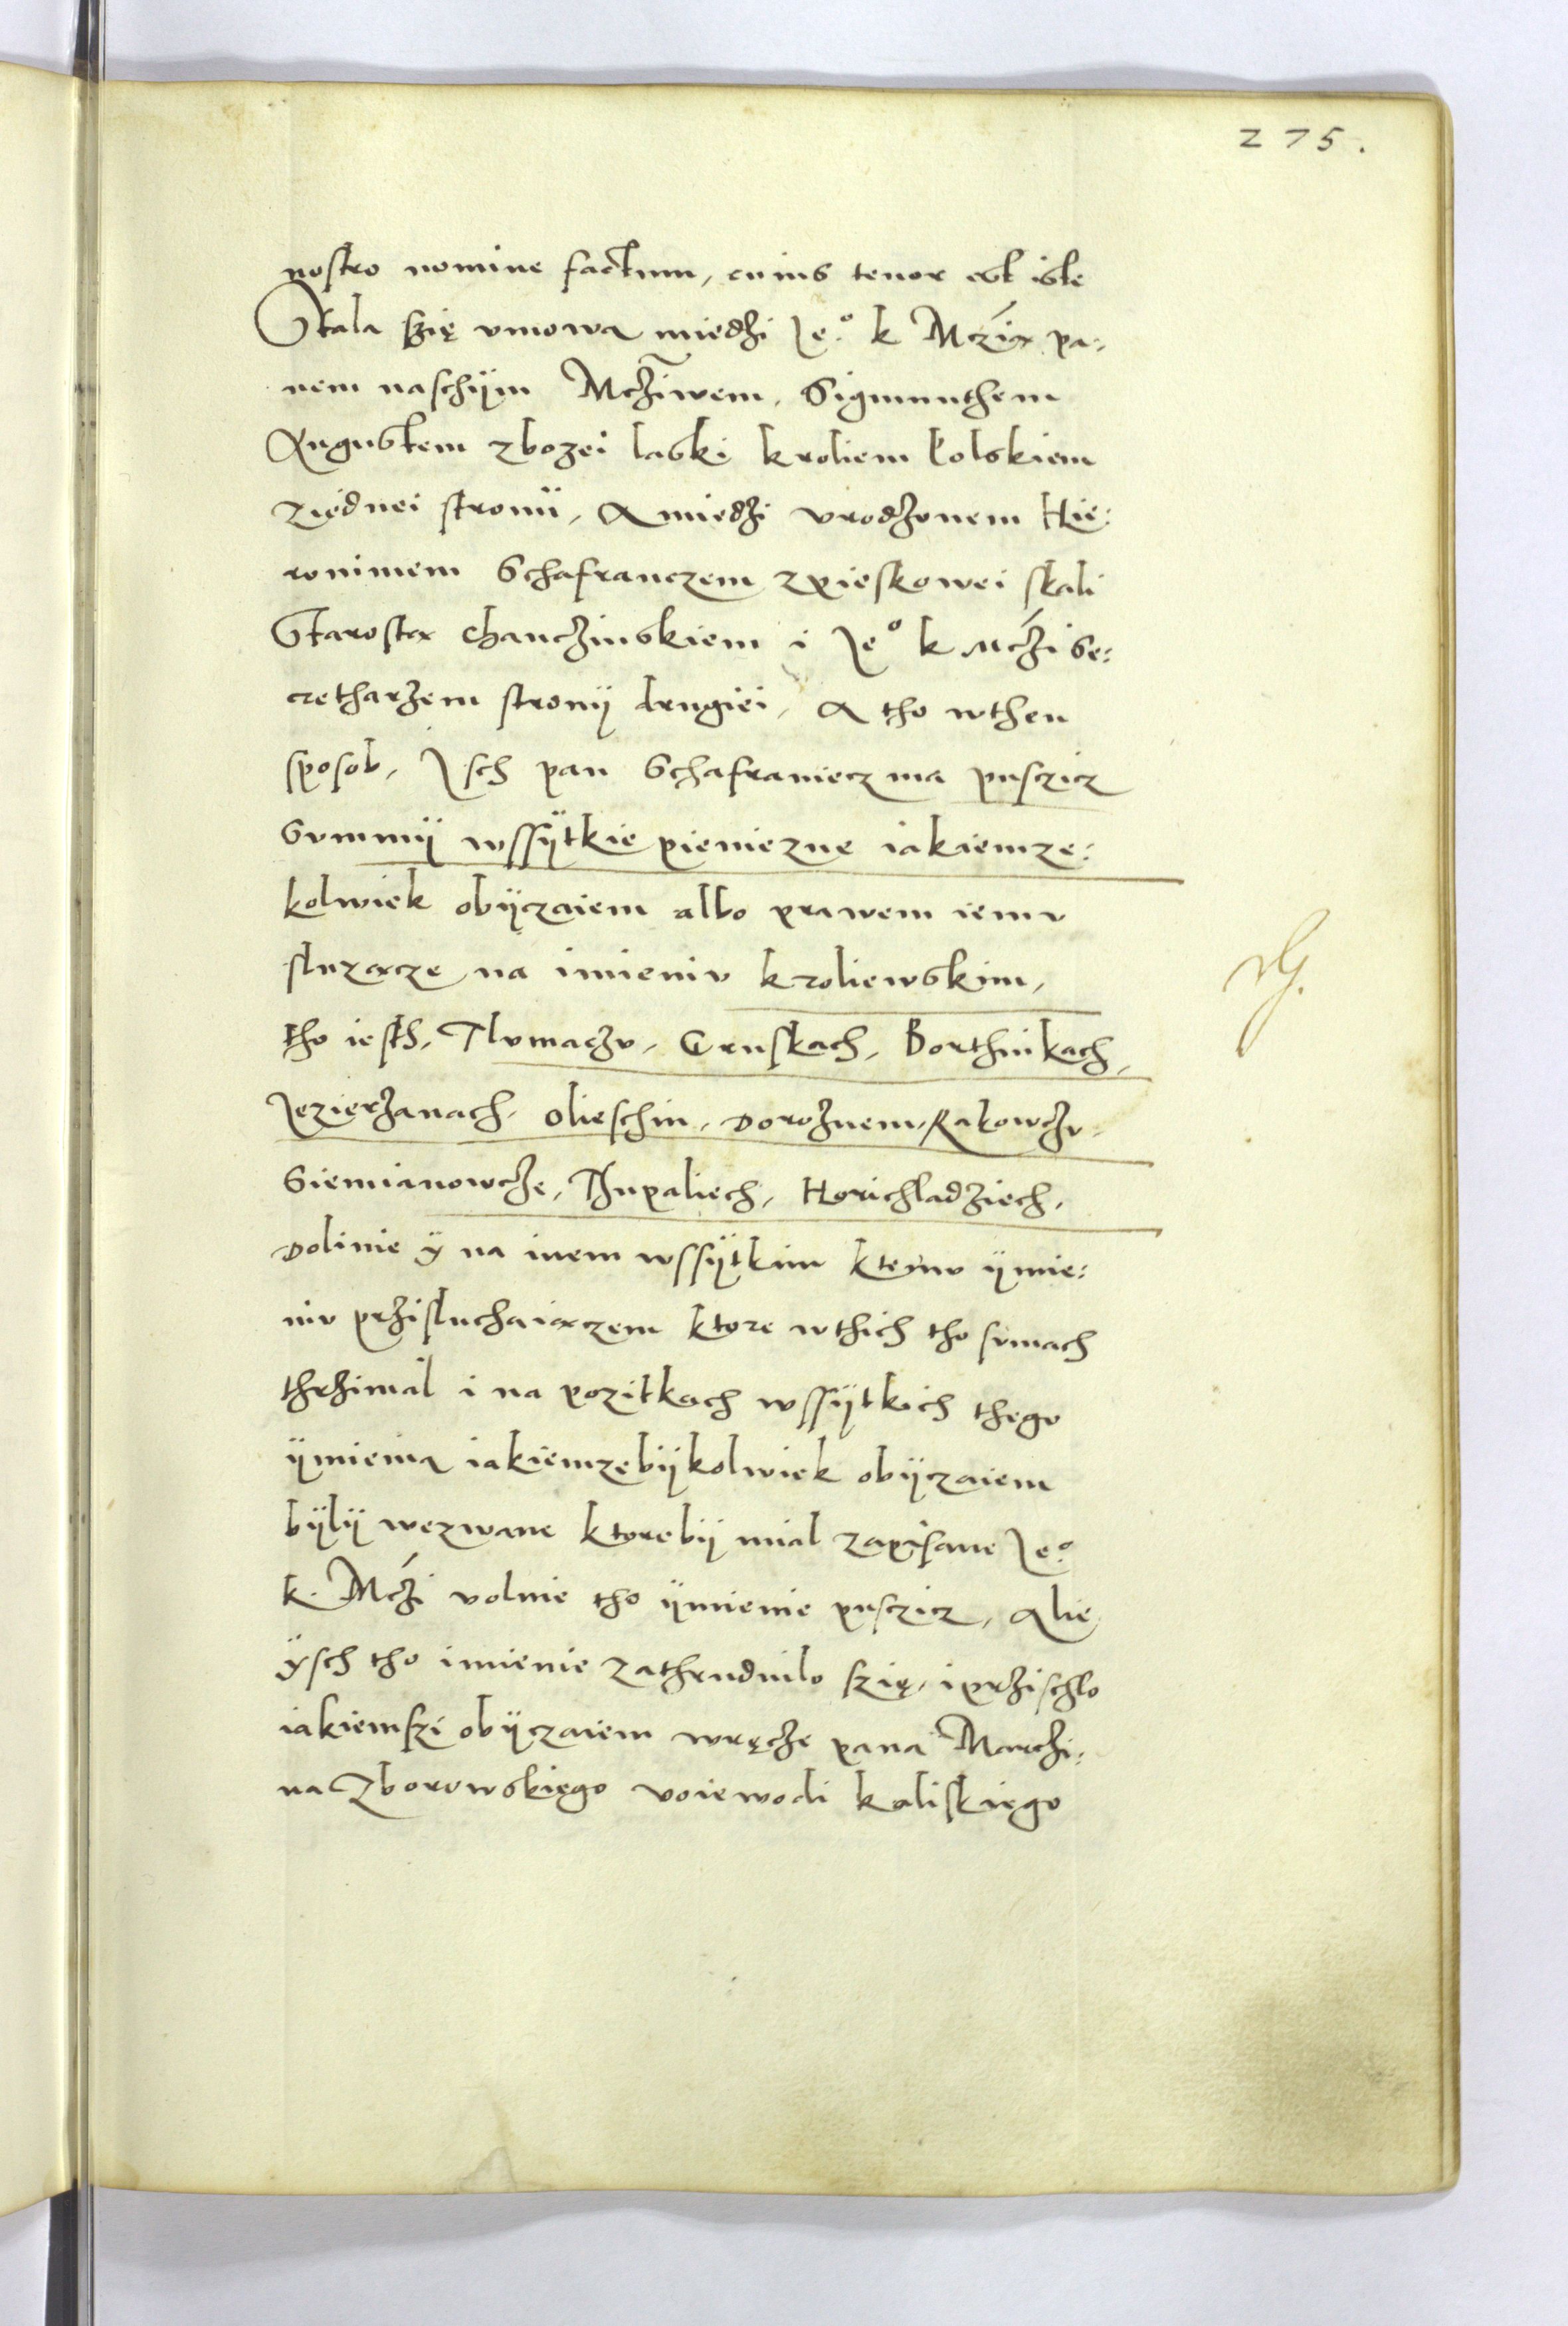 275.
nostro nomine factum, cuius tenor est iste
Stala szię vmowa miedzi Je.° k Mczią pa:
nem naschÿm Mcziwem, Sigmunthem
Augustem zbozei laski kroliem Polskiem
ziednei stronÿ, A miedzi vrodzonem Hie:
ronimem Schafranczem zpieskowei skali
Starostą Chanczinskiem i Je° k Mczi Se:
cretharzem stronÿ drugiei, A tho wthen
sposob, Isch pan Schafraniecz ma pusczicz
Summÿ wssÿtkie pieniezne iakiemze:
kolwiek obÿczaiem albo prawem iemv
sluzącze na imieniv kroliewskim,
tho iesth, Tlvmaczv, Gruskach, Borthnikach,
Jezierzanach, Olieschin, Doroznem, Rakowczv,
Siemianowcze, Thupaliech, Horichladziech,
Dolinie ÿ na inem wssÿtkim ktemv ÿmie:
niv przisluchaiączem ktore wthich tho svmach
thrzimal i na pozitkach wssÿtkich thego
ÿmienia iakiemzebÿkolwiek obÿczaiem
bÿlÿ wezwane ktorebÿ mial zapisane Je.°
k. Mczi volnie tho ÿmienie pusczicz, Alie
ÿsch tho imienie zathrudnilo szię, i przischlo
iakiemszi obÿczaiem wręcze pana Marczi:
na Zborowskięgo voiewodi kaliskięgo